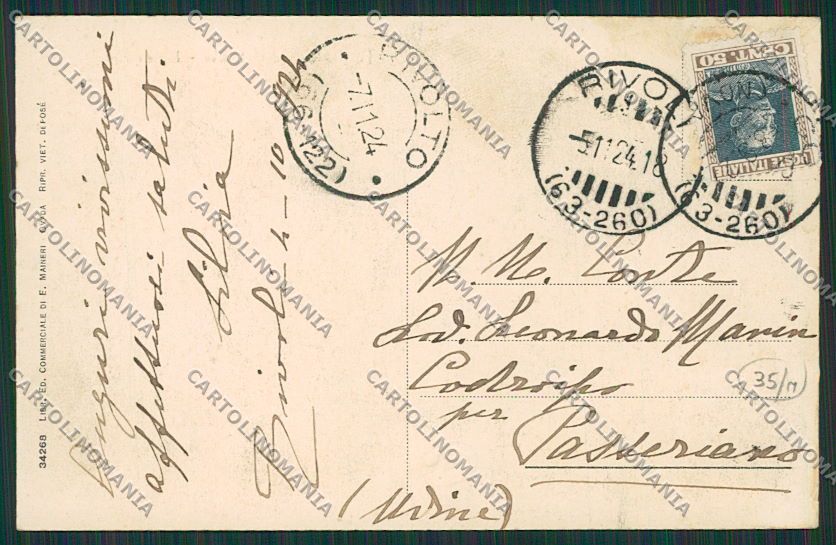 Auguri vivissimi
affettuosi saluti
Silvia
Rivoli 4-10-924
34268 LIBR. ED. COMMERCIALE DI E. MAINERI GARDA RIPR. VIET. DEPOSÉ
RIVOLTO
-7.11.24
RIVOLI
-5.11.24.18
(63-260)
(63-260)
CENT. 50
POSTE ITALIANE
N. M. Conte
Lod. Leonardo Manin
Codroipo
per
Passeriano
(Udine)
35/M
CARTOLINOMANIA